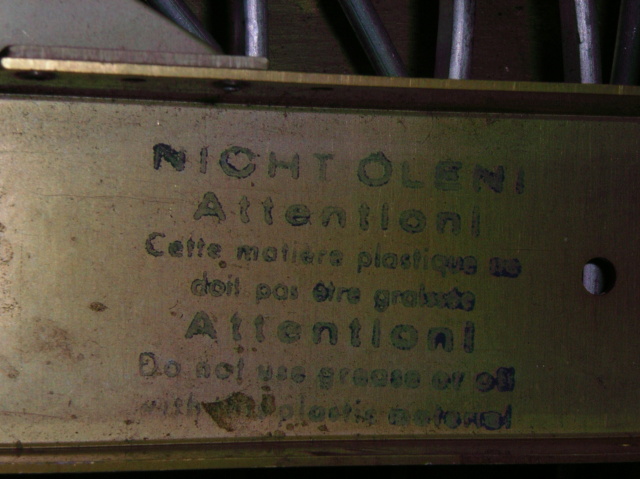 NICHT ÖLEN!
Attention!
Cette matière plastique ne
doit pas être graissée
Attention!
Do not use grease or oil
with this plastic material